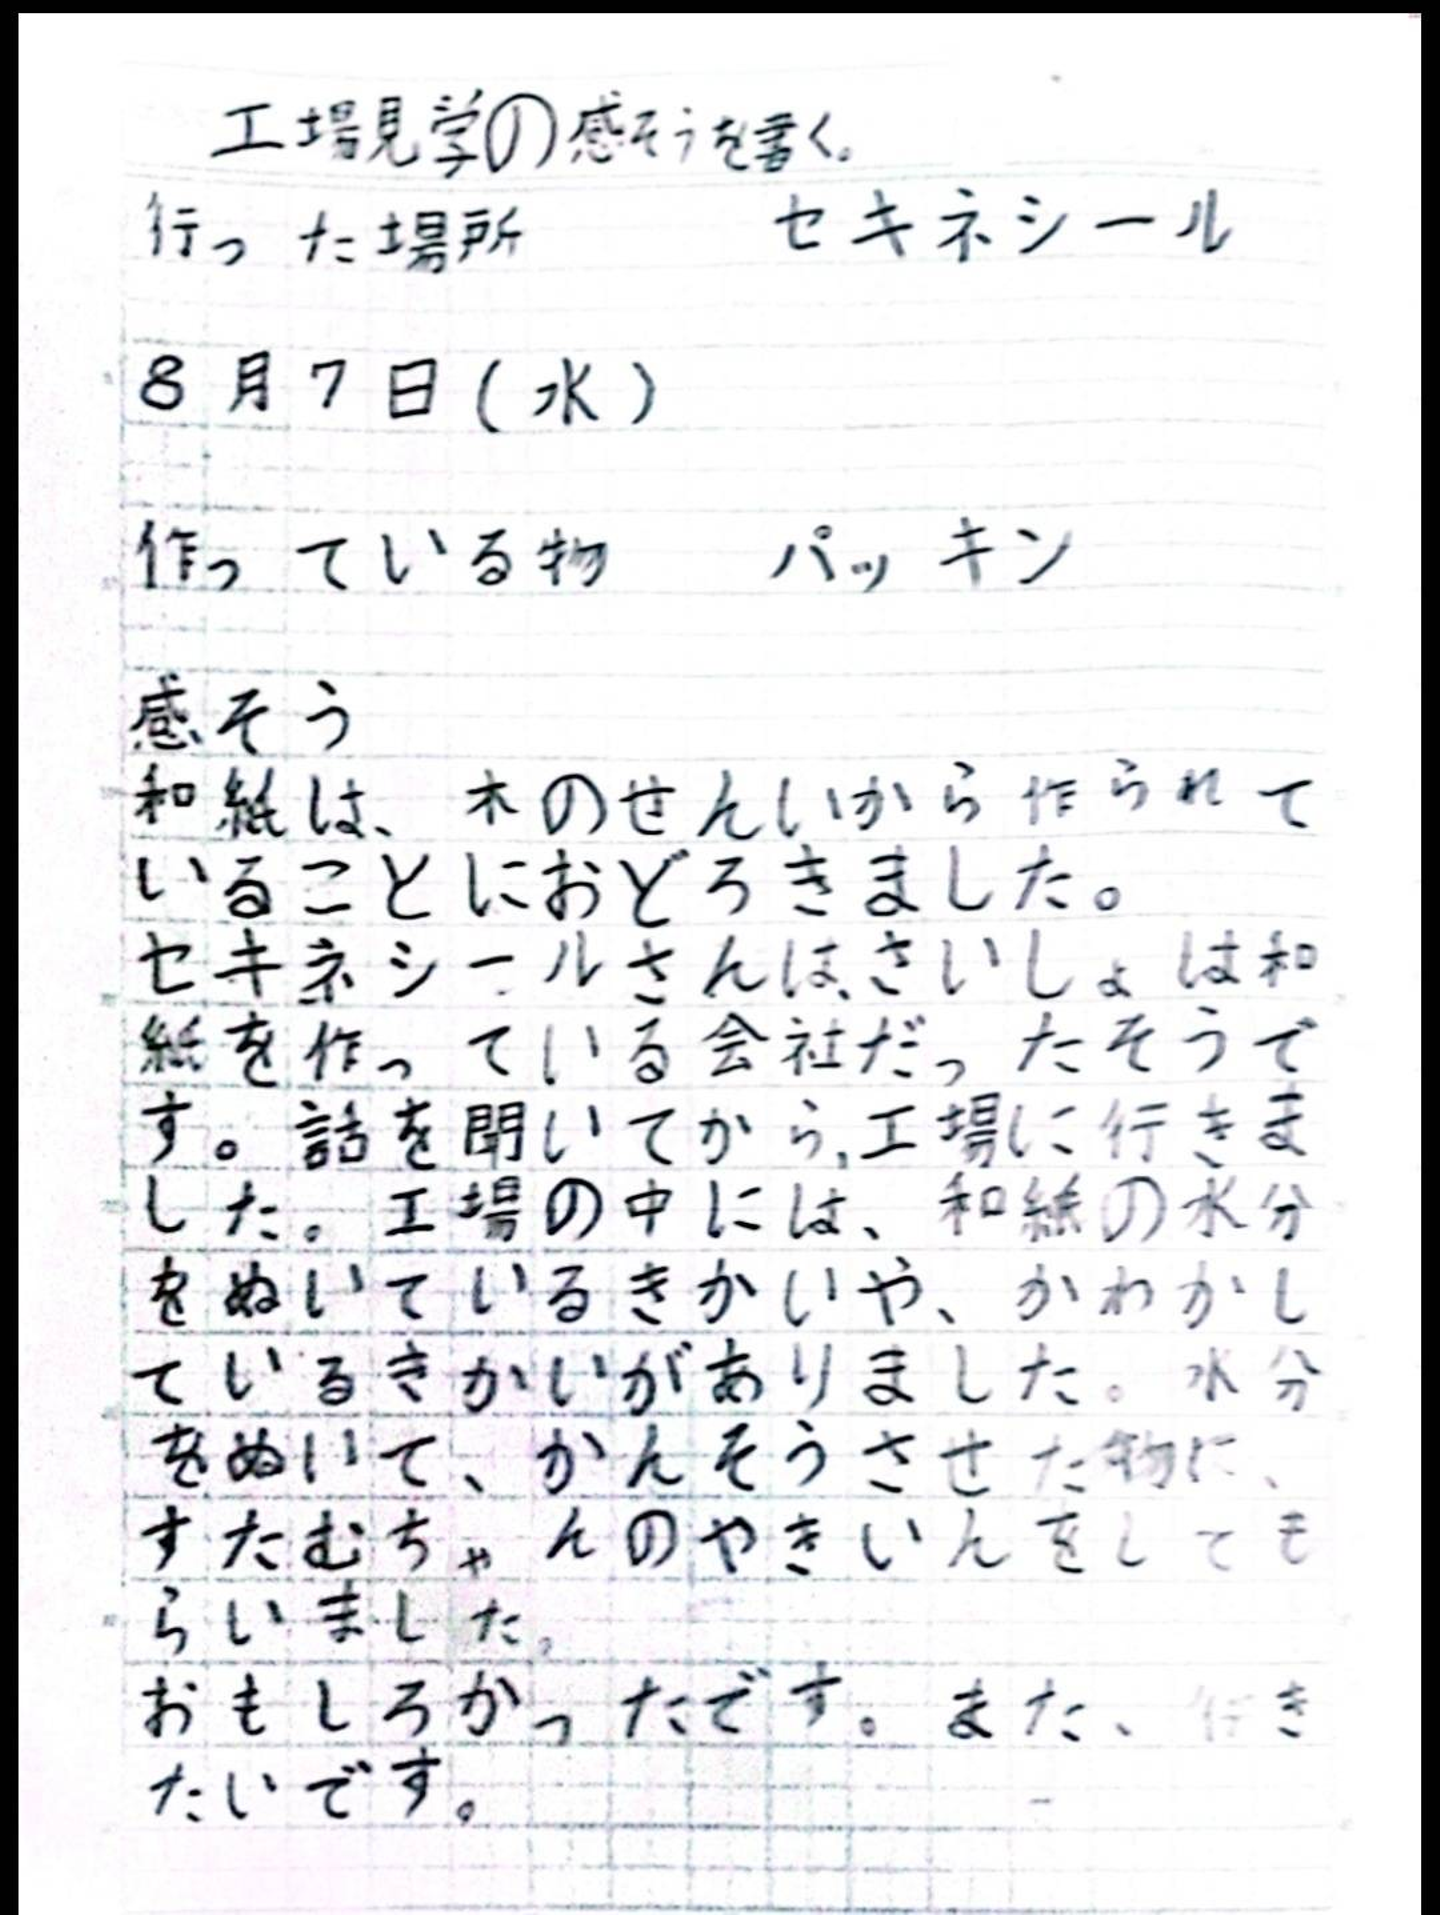 工場見学の感そうを書く。
行った場所 セキネシール
8月7日(水)
作っている物 パッキン
感そう
和紙は、木のせんいから作られて
いることにおどろきました。
セキネシールさんは、さいしょは和
紙を作っている会社だったそうで
す。話を聞いてから、工場に行きま
した。工場の中には、和紙の水分
をぬいているきかいや、かわかし
ているきかいがありました。水分
をぬいて、かんそうさせた物に、
すたむちゃんのやきいんをしても
らいました。
おもしろかったです。また、行き
たいです。